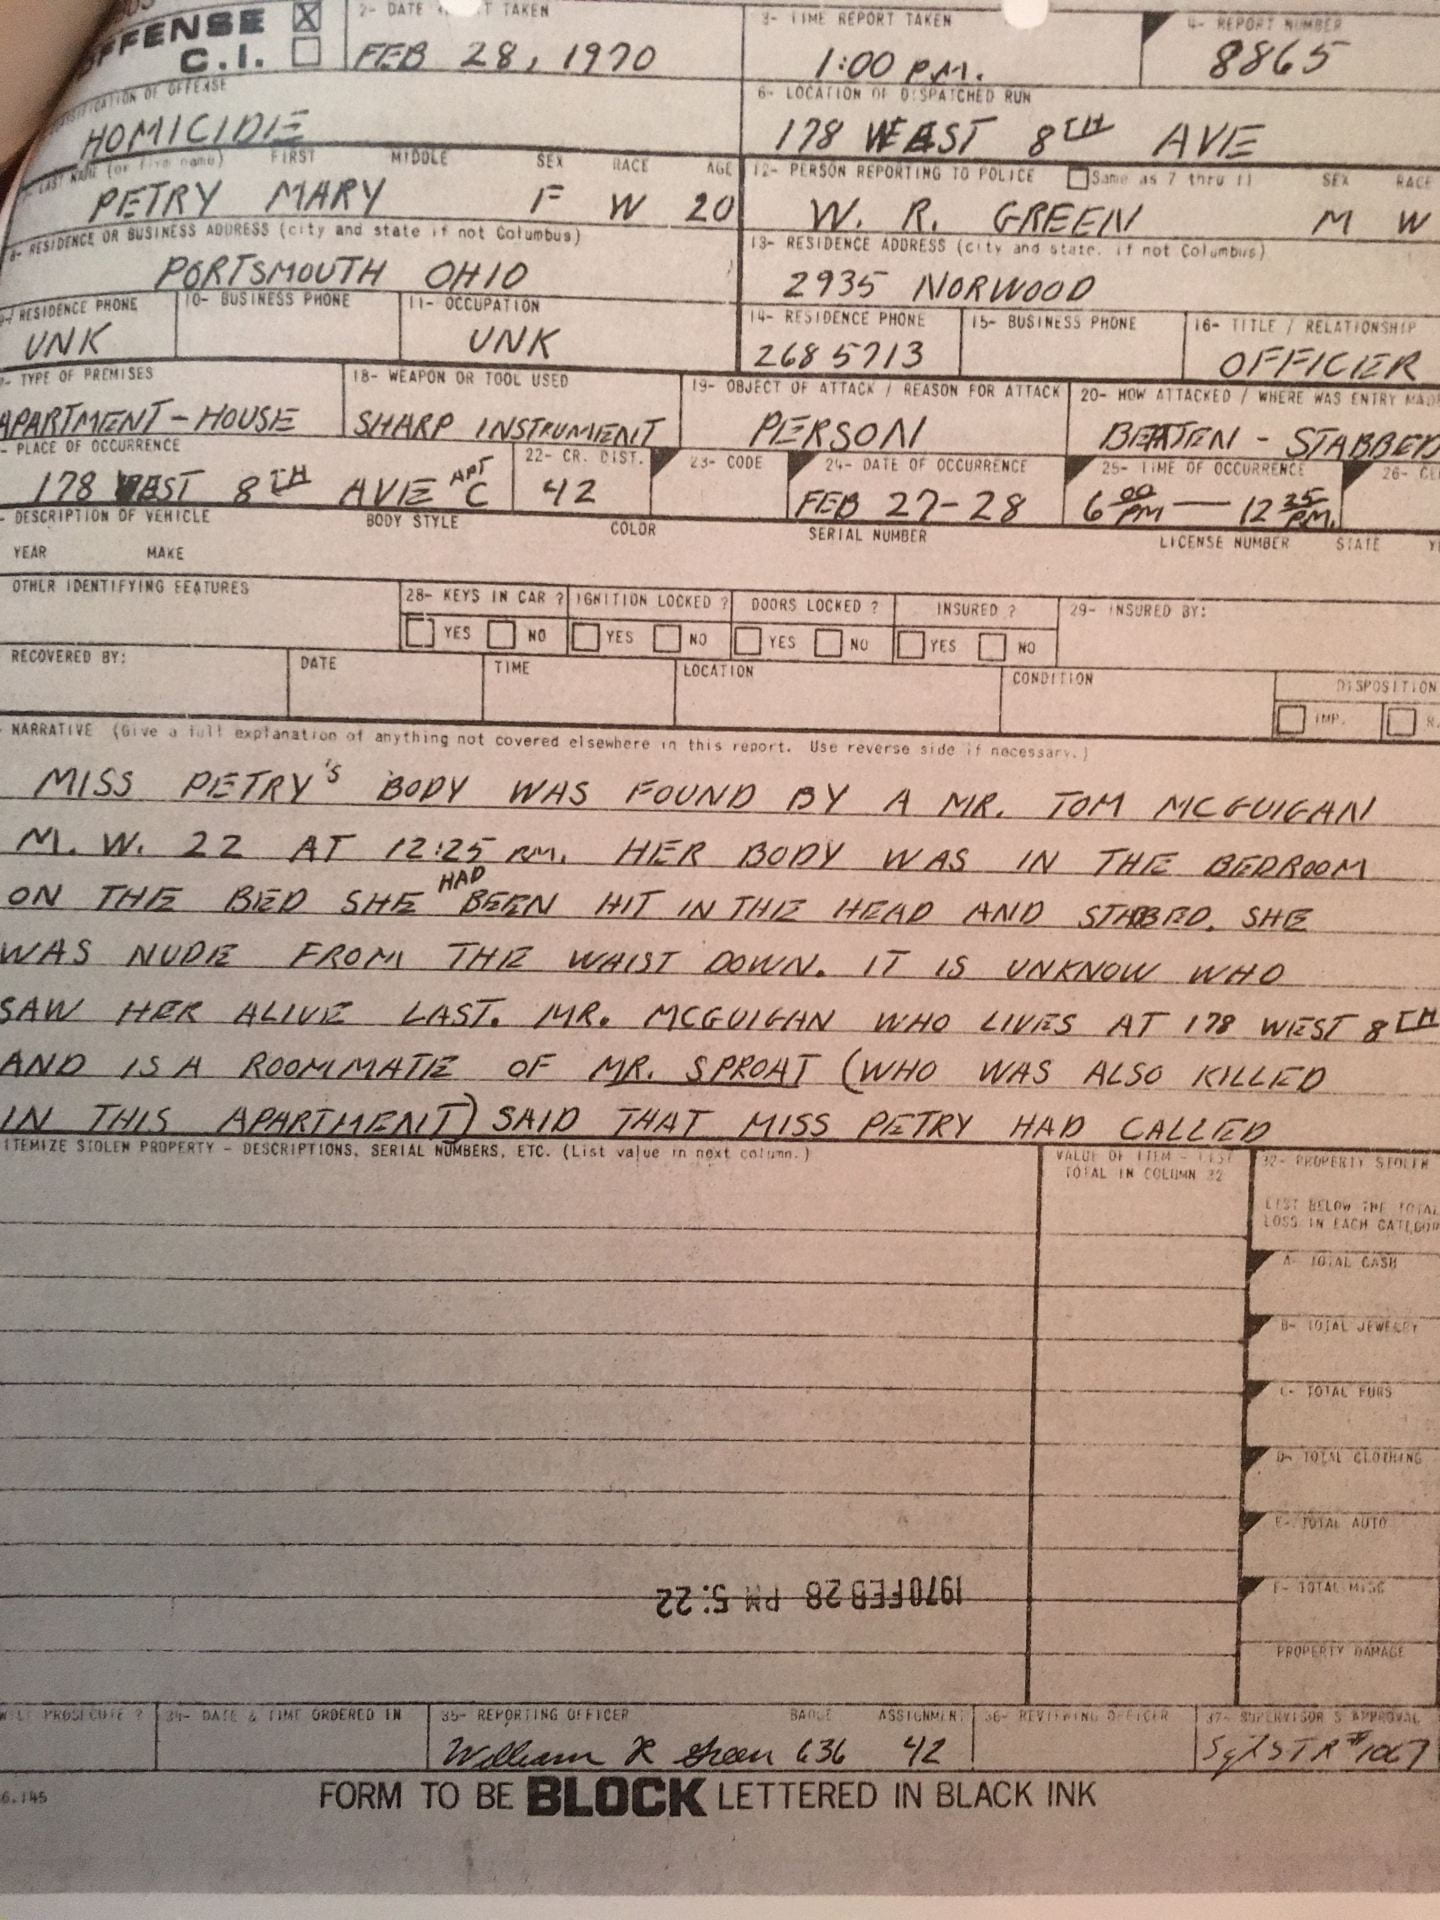 OFFENSE [X] 2- DATE TAKEN 3- TIME REPORT TAKEN 4- REPORT NUMBER
C.I. [ ] FEB 28, 1970 1:00 P.M. 8865
OF OFFENSE 6- LOCATION OF DISPATCHED RUN
HOMICIDE 178 WEST 8TH AVE
LAST NAME (or firm name) FIRST MIDDLE SEX RACE AGE 12- PERSON REPORTING TO POLICE Same as 7 thru 11 SEX RACE
PETRY MARY F W 20 W. R. GREEN M W
8- RESIDENCE OR BUSINESS ADDRESS (city and state if not Columbus) 13- RESIDENCE ADDRESS (city and state. if not Columbus)
PORTSMOUTH OHIO 2935 NORWOOD
9- RESIDENCE PHONE 10- BUSINESS PHONE 11- OCCUPATION 14- RESIDENCE PHONE 15- BUSINESS PHONE 16- TITLE / RELATIONSHIP
UNK UNK 268 5713 OFFICER
- TYPE OF PREMISES 18- WEAPON OR TOOL USED 19- OBJECT OF ATTACK / REASON FOR ATTACK 20- HOW ATTACKED / WHERE WAS ENTRY MADE
APARTMENT-HOUSE SHARP INSTRUMENT PERSON BEATEN - STABBED
- PLACE OF OCCURRENCE 22- CR. DIST. 23- CODE 24- DATE OF OCCURRENCE 25- TIME OF OCCURRENCE 26-
178 WEST 8TH AVE APT C 42 FEB 27-28 6 00 PM — 12 25 PM.
- DESCRIPTION OF VEHICLE BODY STYLE COLOR SERIAL NUMBER LICENSE NUMBER STATE
YEAR MAKE
OTHER IDENTIFYING FEATURES 28- KEYS IN CAR ? IGNITION LOCKED ? DOORS LOCKED ? INSURED ? 29- INSURED BY:
YES NO YES NO YES NO YES NO
RECOVERED BY: DATE TIME LOCATION CONDITION DISPOSITION
IMP. R.
- NARRATIVE (Give a full explanation of anything not covered elsewhere in this report. Use reverse side if necessary.)
MISS PETRY'S BODY WAS FOUND BY A MR. TOM MCGUIGAN
M. W. 22 AT 12:25 P.M. HER BODY WAS IN THE BEDROOM
ON THE BED SHE HAD BEEN HIT IN THE HEAD AND STABBED. SHE
WAS NUDE FROM THE WAIST DOWN. IT IS UNKNOW WHO
SAW HER ALIVE LAST. MR. MCGUIGAN WHO LIVES AT 178 WEST 8TH
AND IS A ROOMMATE OF MR. SPROAT (WHO WAS ALSO KILLED
IN THIS APARTMENT) SAID THAT MISS PETRY HAD CALLED
ITEMIZE STOLEN PROPERTY - DESCRIPTIONS, SERIAL NUMBERS, ETC. (List value in next column.) VALUE OF ITEM - LIST 32- PROPERTY STOLEN
TOTAL IN COLUMN 32
LIST BELOW THE TOTAL
LOSS IN EACH CATEGORY
A- TOTAL CASH
B- TOTAL JEWELRY
C- TOTAL FURS
D- TOTAL CLOTHING
E- TOTAL AUTO
F- TOTAL MISC
1970 FEB 28 PM 5:22
PROPERTY DAMAGE
PROSECUTE ? 34- DATE & TIME ORDERED IN 35- REPORTING OFFICER BADGE ASSIGNMENT 36- REVIEWING OFFICER 37- SUPERVISOR'S APPROVAL
William R Green 636 42 #1067
6.145
FORM TO BE BLOCK LETTERED IN BLACK INK